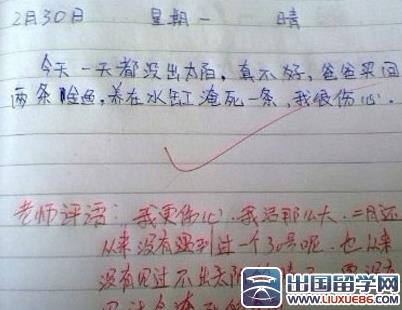 2月30日 星期一 晴
今天一天都没出太阳，真不好，爸爸买回
两条鲶鱼，养在水缸淹死一条，我很伤心.
老师评语：我更伤心.我活那么大.二月还
从来没有遇到过一个30号呢.也从来
没有见过不出太阳
出国留学网
www.liuxue86.com